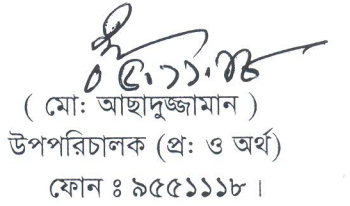 ০৫.১১.১৮
( মো: আছাদুজ্জামান )
উপপরিচালক (প্র: ও অর্থ)
ফোন ঃ ৯৫৫১১১৮ ।